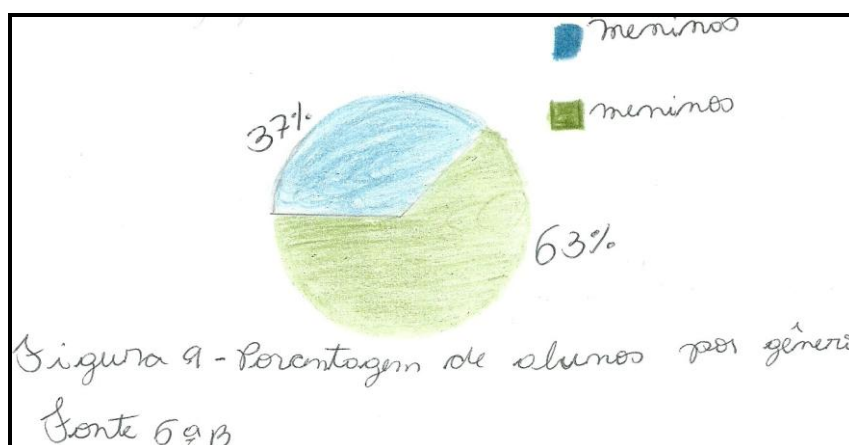 meninos
37%
meninos
63%
Figura 9 - Porcentagem de alunos por gênero
Fonte 6ª B